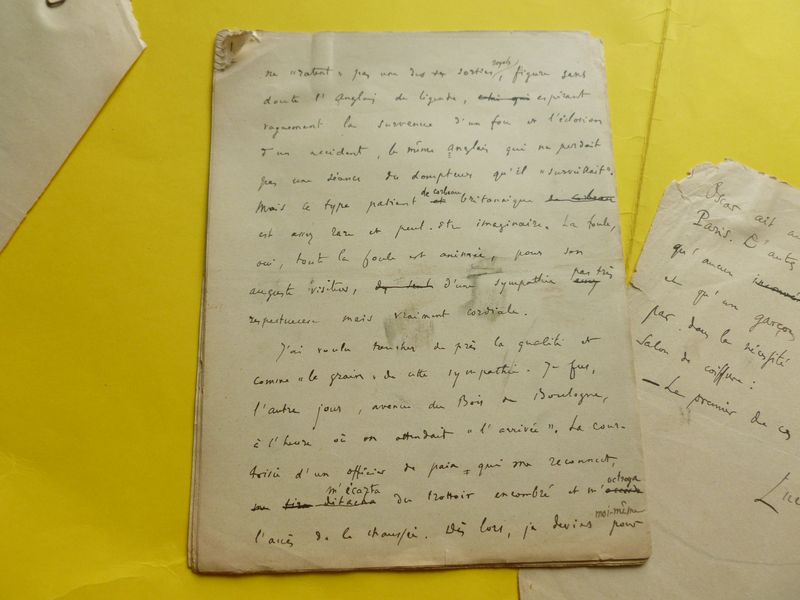 ne "ratent" pas une des sorties royales, figure sans
doute l'anglais de légende, celui qui espérant
vaguement la survenue d'un fou et l'éclosion
d'un accident, le même anglais qui ne perdait
pas une séance du dompteur qu'il "surveillait".
Mais ce type patient et de corbeau britannique de corbeau
est assez rare et peut-être imaginaire. La foule,
oui, toute la foule est animée, pour son
auguste visiteur, d'une sympathie pas très
respectueuse mais vraiment cordiale.
J'ai voulu toucher de près la qualité et
comme "le grain" de cette sympathie. Je fus,
l'autre jour, avenue du Bois de Boulogne,
à l'heure où on attendait "l'arrivée". La cour-
toisie d'un officier de paix qui me reconnut,
me tira détacha m'écarta du trottoir encombré et m'accorda octroya
l'accès de la chaussée. Dès lors, je devins moi-même pour
Oscar ait
Paris. L'autre
qu'aucun
et qu'un garçon
par dans la nécessité
Salon de coiffure :
— Le premier de ces
Luc